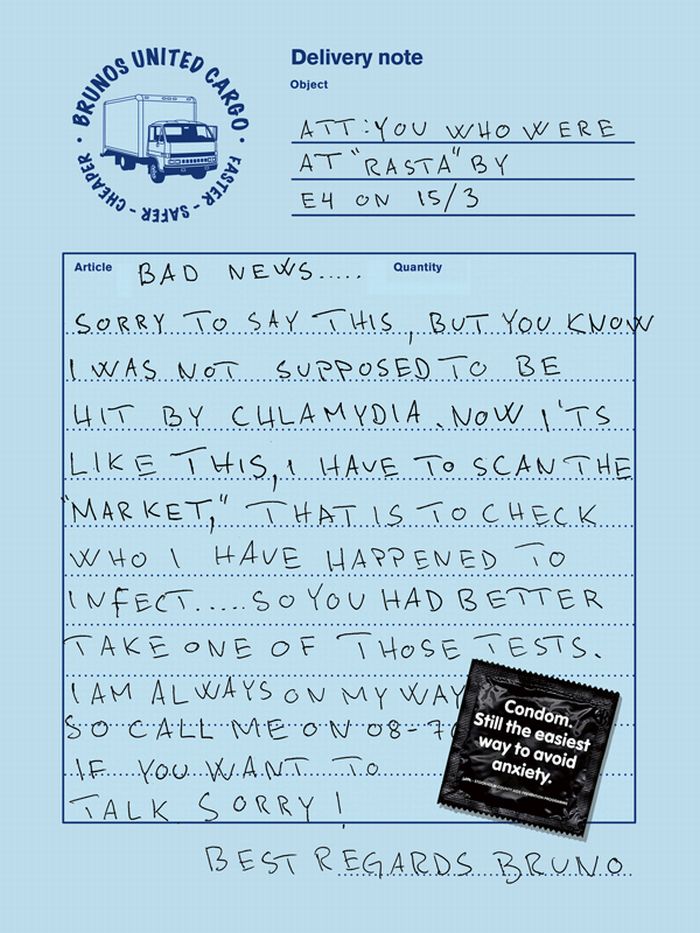 BRUNOS UNITED CARGO
FASTER - SAFER - CHEAPER
Delivery note
Object
ATT: YOU WHO WERE
AT "RASTA" BY
E4 ON 15/3
Article BAD NEWS..... Quantity
SORRY TO SAY THIS, BUT YOU KNOW
I WAS NOT SUPPOSED TO BE
HIT BY CHLAMYDIA. NOW I'TS
LIKE THIS, I HAVE TO SCAN THE
"MARKET," THAT IS TO CHECK
WHO I HAVE HAPPENED TO
INFECT..... SO YOU HAD BETTER
TAKE ONE OF THOSE TESTS.
I AM ALWAYS ON MY WAY
SO CALL ME ON 08-70
IF YOU WANT TO
TALK SORRY!
BEST REGARDS BRUNO
Condom.
Still the easiest
way to avoid
anxiety.
STOCKHOLM COUNTY AIDS PREVENTION PROGRAMME